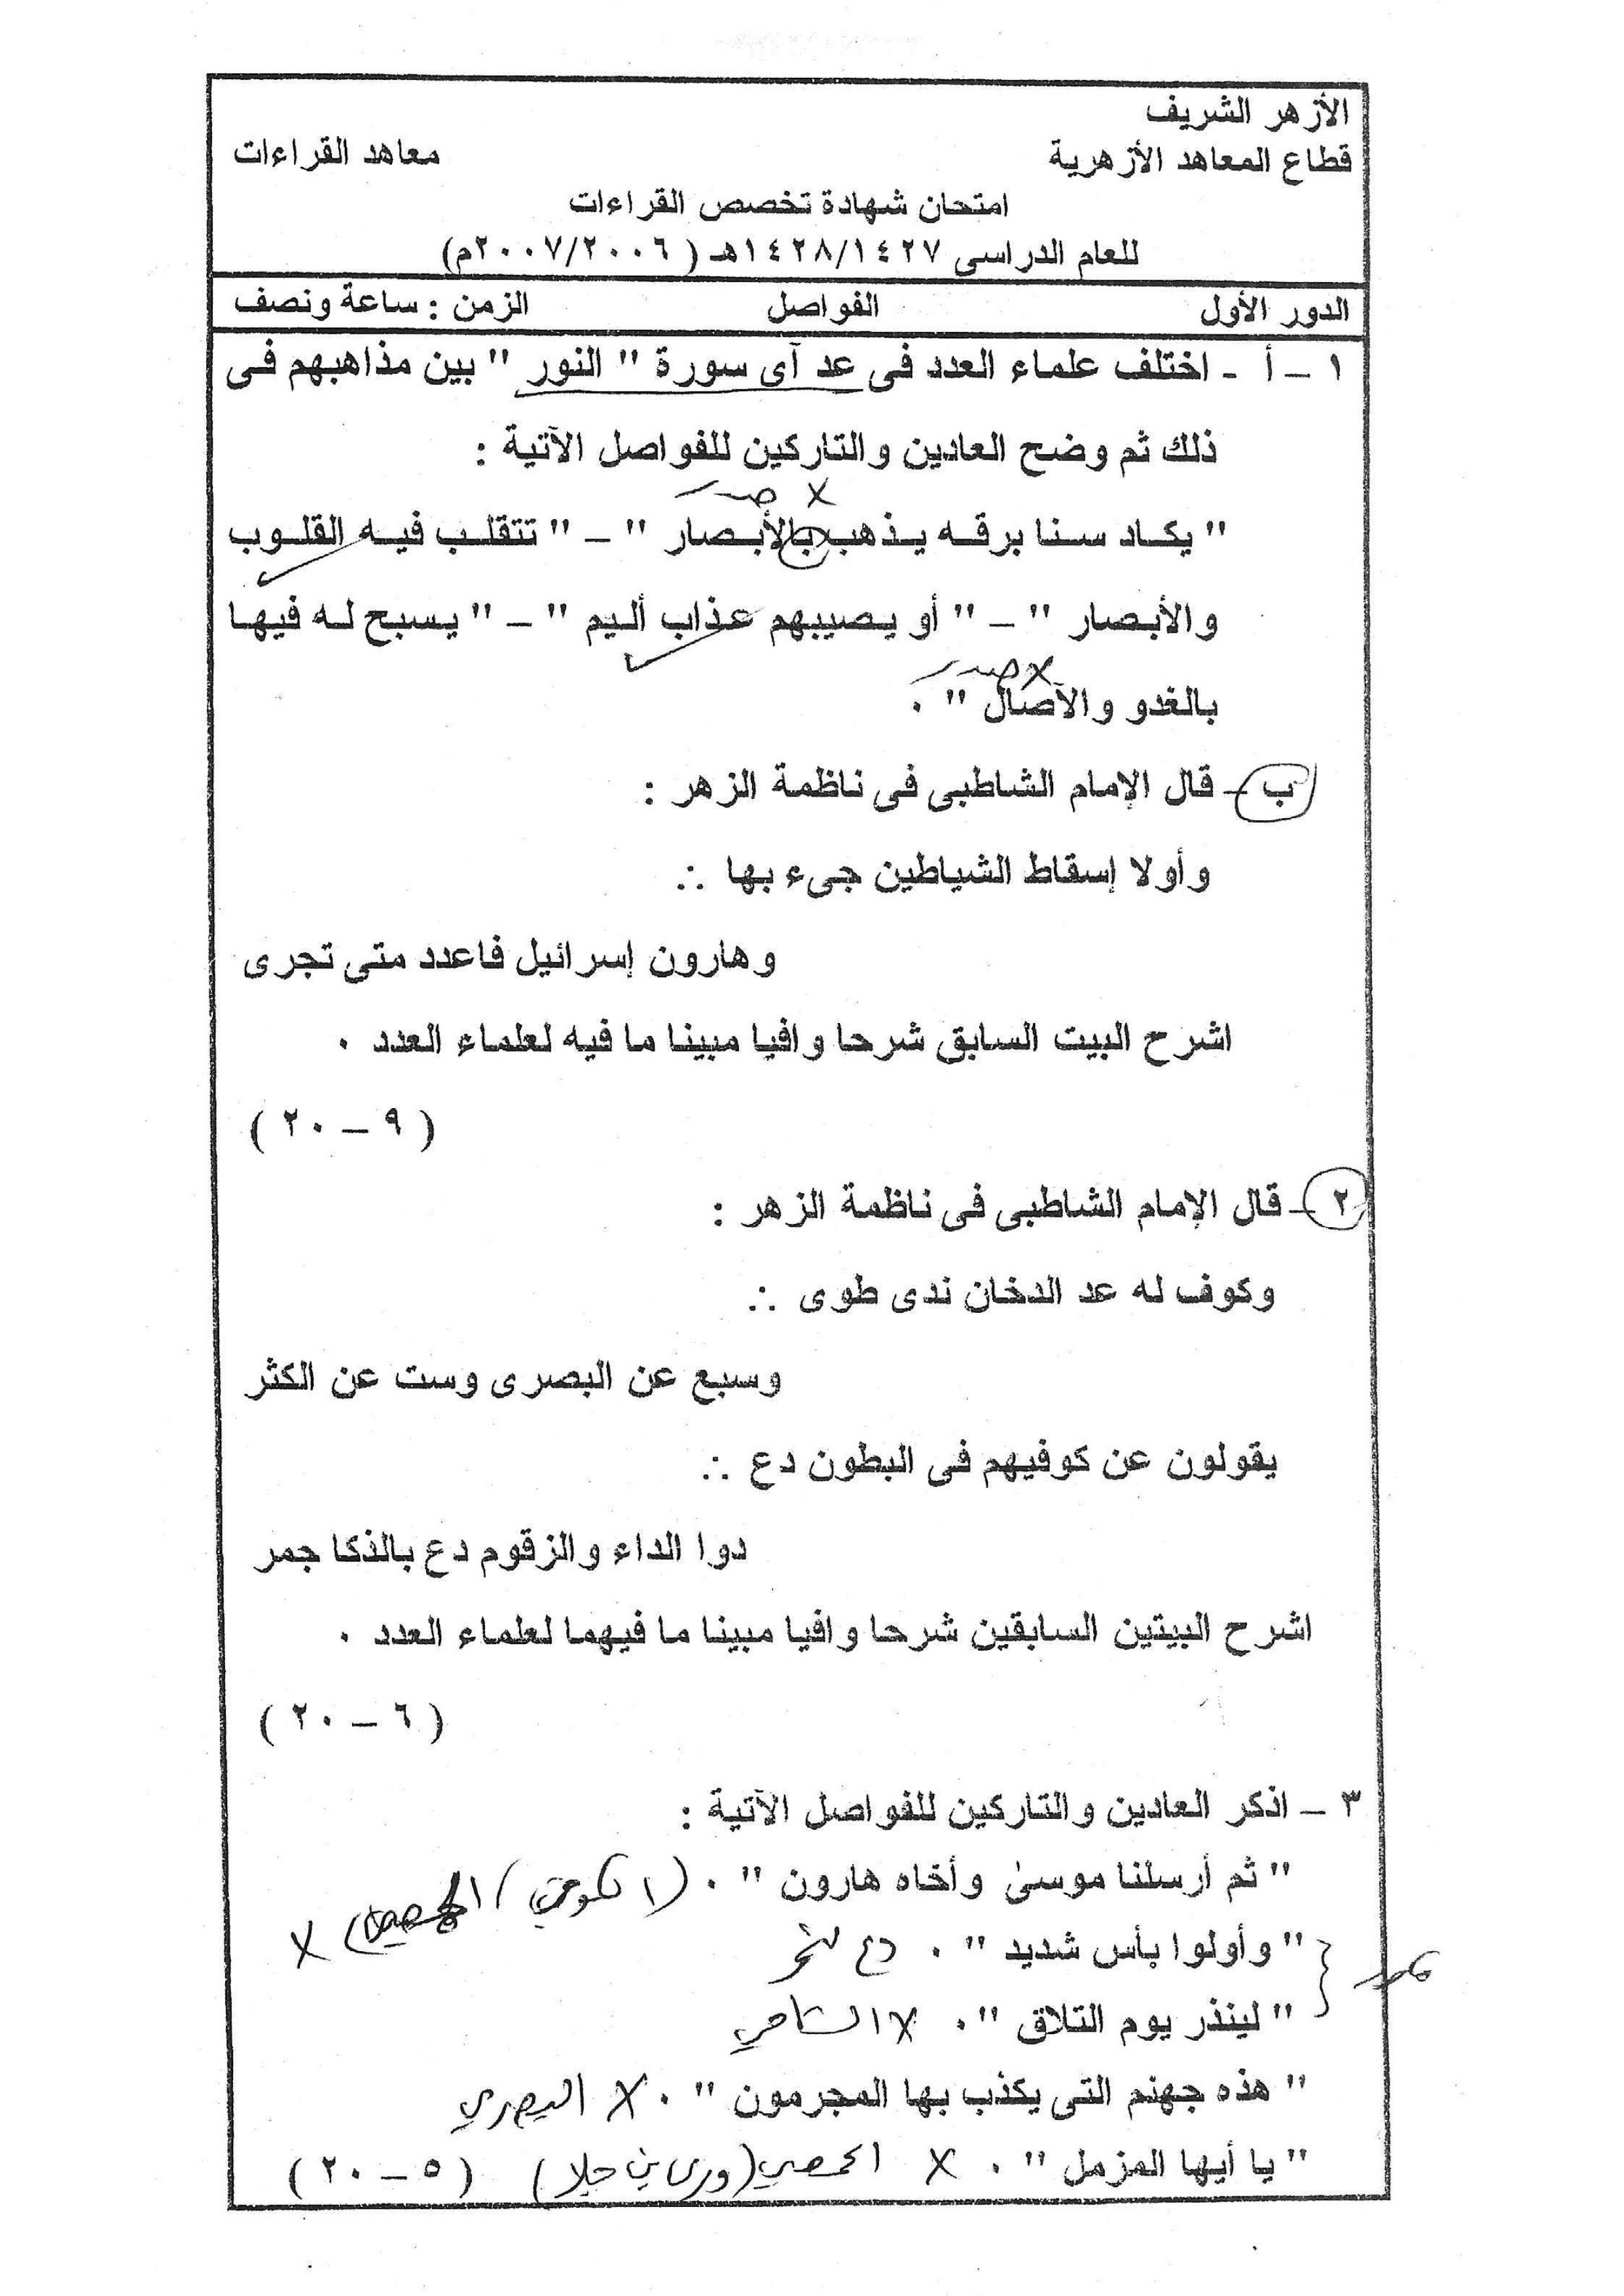 الأزهر الشريف
قطاع المعاهد الأزهرية معاهد القراءات
امتحان شهادة تخصص القراءات
للعام الدراسى ١٤٢٨/١٤٢٧هـ ( ٢٠٠٧/٢٠٠٦م)
الدور الأول الفواصل الزمن : ساعة ونصف
١ – أ - اختلف علماء العدد فى عد آى سورة " النور " بين مذاهبهم فى
ذلك ثم وضح العادين والتاركين للفواصل الآتية :
X
" يكاد سنا برقه يذهب بالأبصار " – " تتقلب فيه القلوب
والأبصار " – " أو يصيبهم عذاب أليم " – " يسبح له فيها
X
بالغدو والآصال " .
ب – قال الإمام الشاطبى فى ناظمة الزهر :
وأولا إسقاط الشياطين جىء بها ∴
وهارون إسرائيل فاعدد متى تجرى
اشرح البيت السابق شرحا وافيا مبينا ما فيه لعلماء العدد .
( ٩ – ٢٠ )
٢ – قال الإمام الشاطبى فى ناظمة الزهر :
وكوف له عد الدخان ندى طوى ∴
وسبع عن البصرى وست عن الكثر
يقولون عن كوفيهم فى البطون دع ∴
دوا الداء والزقوم دع بالذكا جمر
اشرح البيتين السابقين شرحا وافيا مبينا ما فيهما لعلماء العدد .
( ٦ – ٢٠ )
٣ – اذكر العادين والتاركين للفواصل الآتية :
" ثم أرسلنا موسىٰ وأخاه هارون " . (الكوفي) X
" وأولوا بأس شديد " . دع
" لينذر يوم التلاق " . X الشامي
" هذه جهنم التى يكذب بها المجرمون " . X البصري
" يا أيها المزمل " . X الحمصي ( ٥ – ٢٠ )